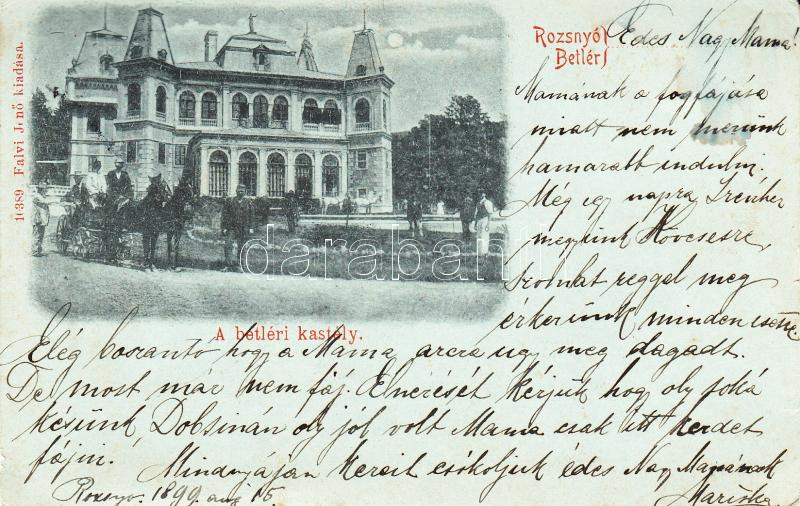 Rozsnyó
Betlér
Édes Nagy Mama!
Mamának a fogfájása
miatt nem merünk
hamarabb indulni.
Még egy napra
megyünk Kövecsesre,
Szombat reggel meg
érkerünk minden esetre
10389 Falvi Jenő kiadása.
A betléri kastély.
Elég bosszantó hogy a Mama arcra ugy meg dagadt.
De most már nem fáj. Elnézését kérjük hogy oly soká
késünk Dobsinán oly jól volt Mama csak itt kezdet
fájni. Mindnyájan kezeit csókoljuk édes Nagy Mamának
Rozsnyo. 1899 aug 15
Mariska
darabanth